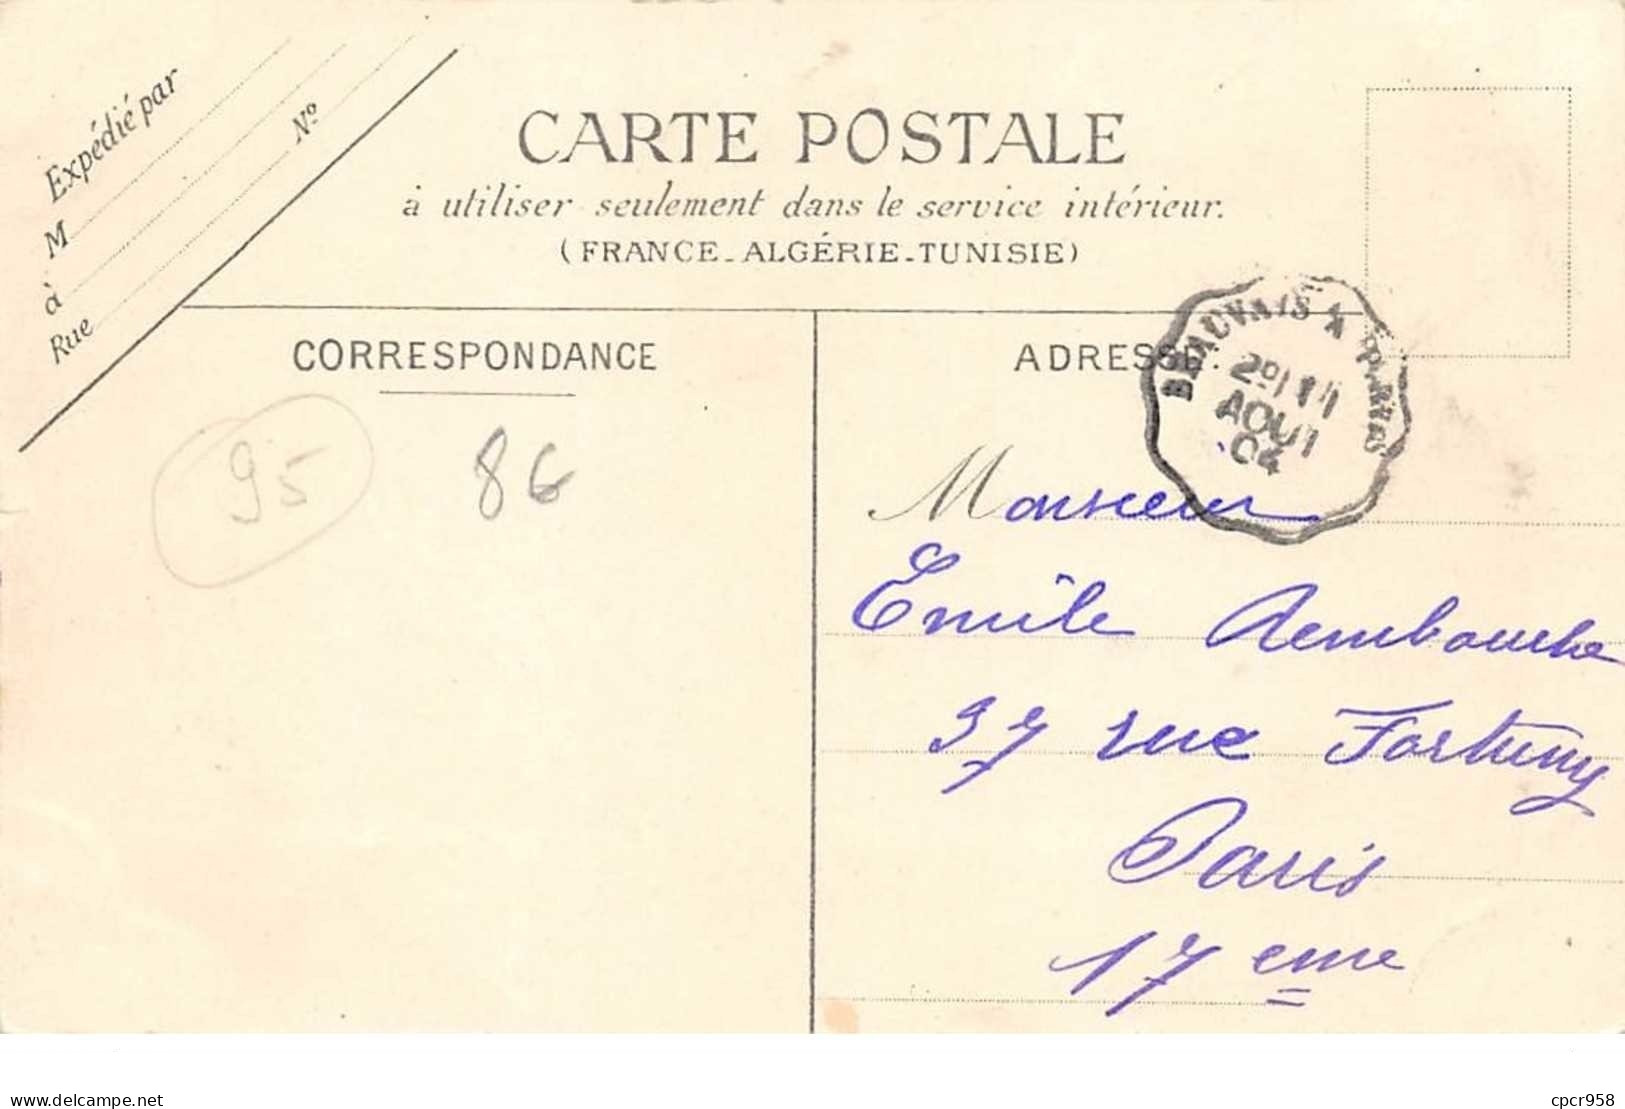 Expédié par
M
à
Rue Nº
CARTE POSTALE
à utiliser seulement dans le service intérieur.
(FRANCE-ALGÉRIE-TUNISIE)
CORRESPONDANCE
ADRESSE.
BEAUVAIS A PARIS
AOUT
04
95
86
Monsieur
Emile
37 rue Fortuny
Paris
17 eme
Delcampe.net
cpcr958